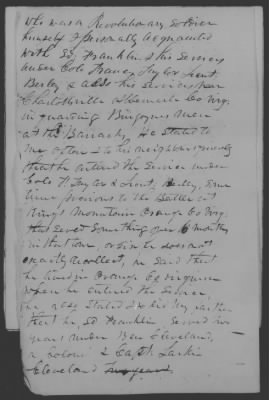 who was a Revolutionary Soldier
himself & personally acquainted
with Sd. Franklin & his Services
under Cols Francis Taylor & Lieut
Burley & adds his services were
Charlottsville Albemarle Co Virg.
in guarding Burgoynes men
at the Barracks, He Stated to
me often & to his neighbors
that he entered the Service under
Cols F. Taylor & Lieut. Burley, Some
time previous to the Battle at
Kings Mountain Orange Co Virg.
that served Something over 6 months
in that tour, or six he does not
exactly recollect, he said that
he lived in Orange Co Virginia
when he entered the Service
he also Stated to me
that he, Sd Franklin Served two
years under Ben Cleveland,
a Colonel & Capt. Larkin
Cleveland